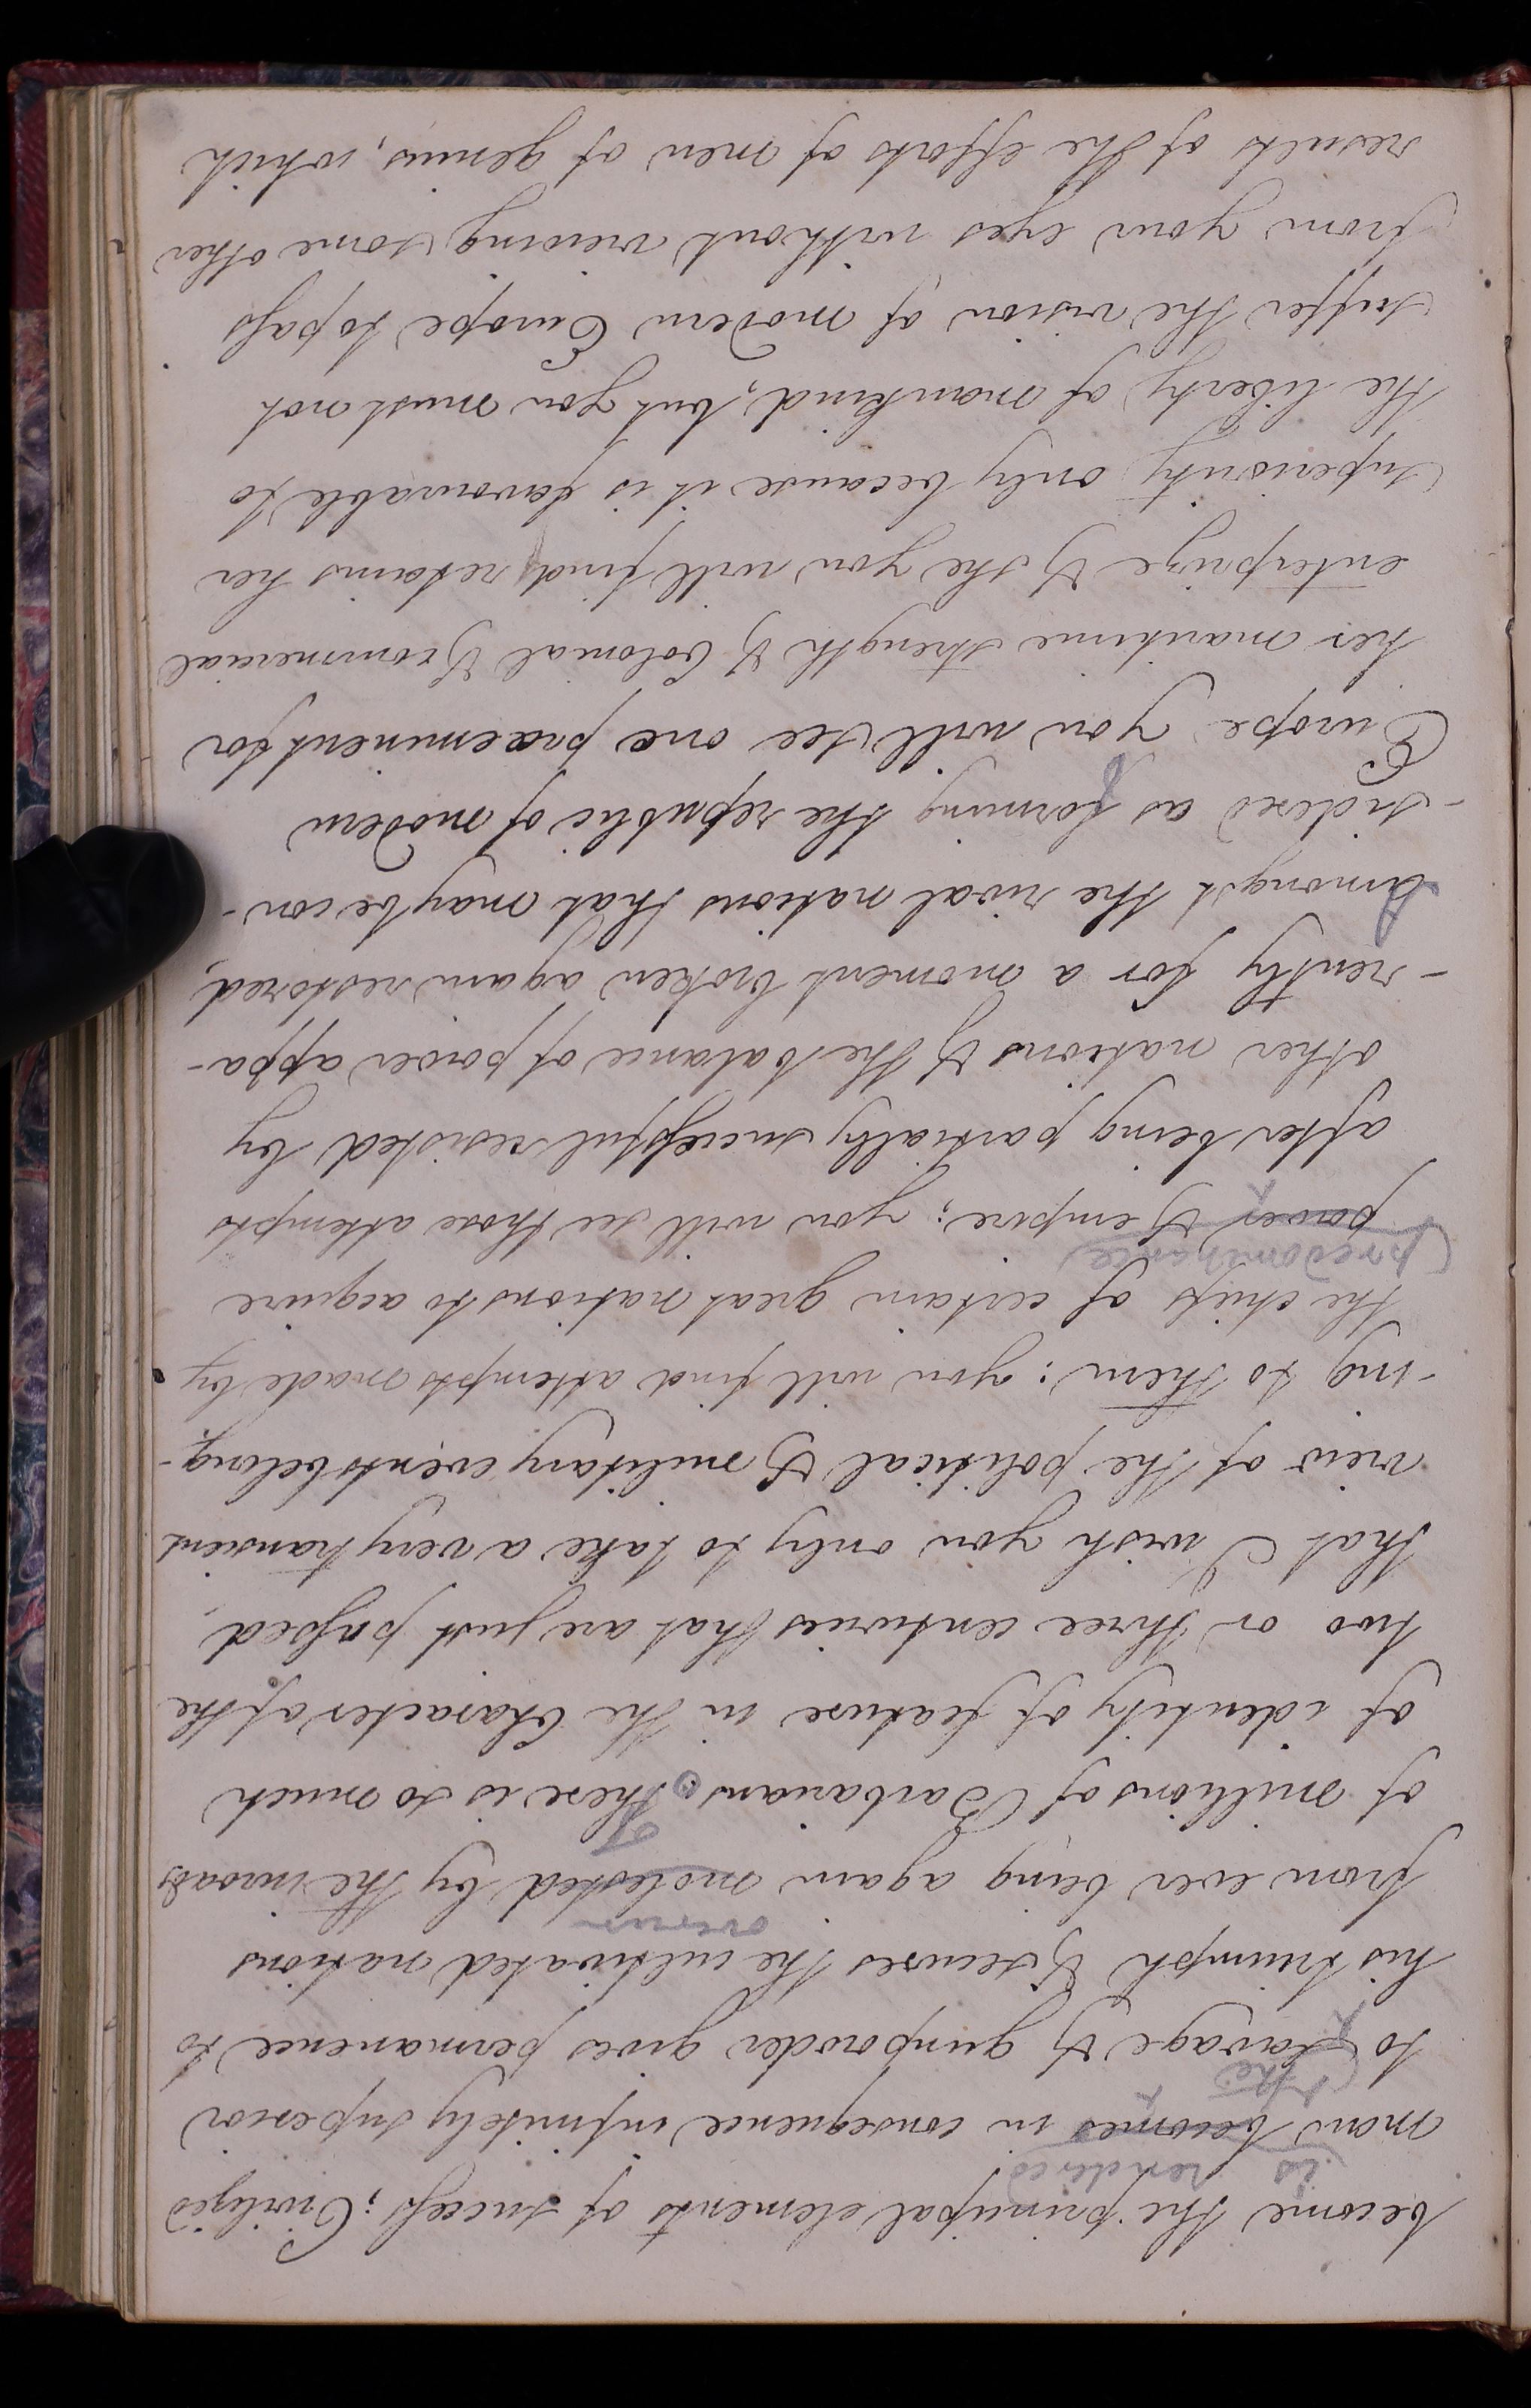 become the principal elements of success; Civilized
is rendered
man becomes in consequence infinitely superior
the
to savage & gunpowder gives permanence to
his triumph & secures the cultivated nations
overrun
from ever being again molested by the inroads
of millions of Barbarians. There is so much
of identity of feature in the Character of the
two or three centuries that are just passed,
that I wish you only to take a very transient
view of the political & military events belong-
-ing to them: you will find attempts made by
the chiefs of certain great nations to acquire
predominance
power & empire; you will see those attempts
after being partially successful resisted by
other nations & the balance of power appa-
-rently for a moment broken again restored,
Amongst the rival nations that may be con-
-sidered as forming the republic of modern
Europe you will see one præeminent for
her maritime strength & Colonial & commercial
enterprize & she you will find retains her
superiority only because it is favourable to
the liberty of mankind; but you must not
suffer the vision of modern Europe to pass
from your eyes without viewing some other
results of the efforts of men of genius, which